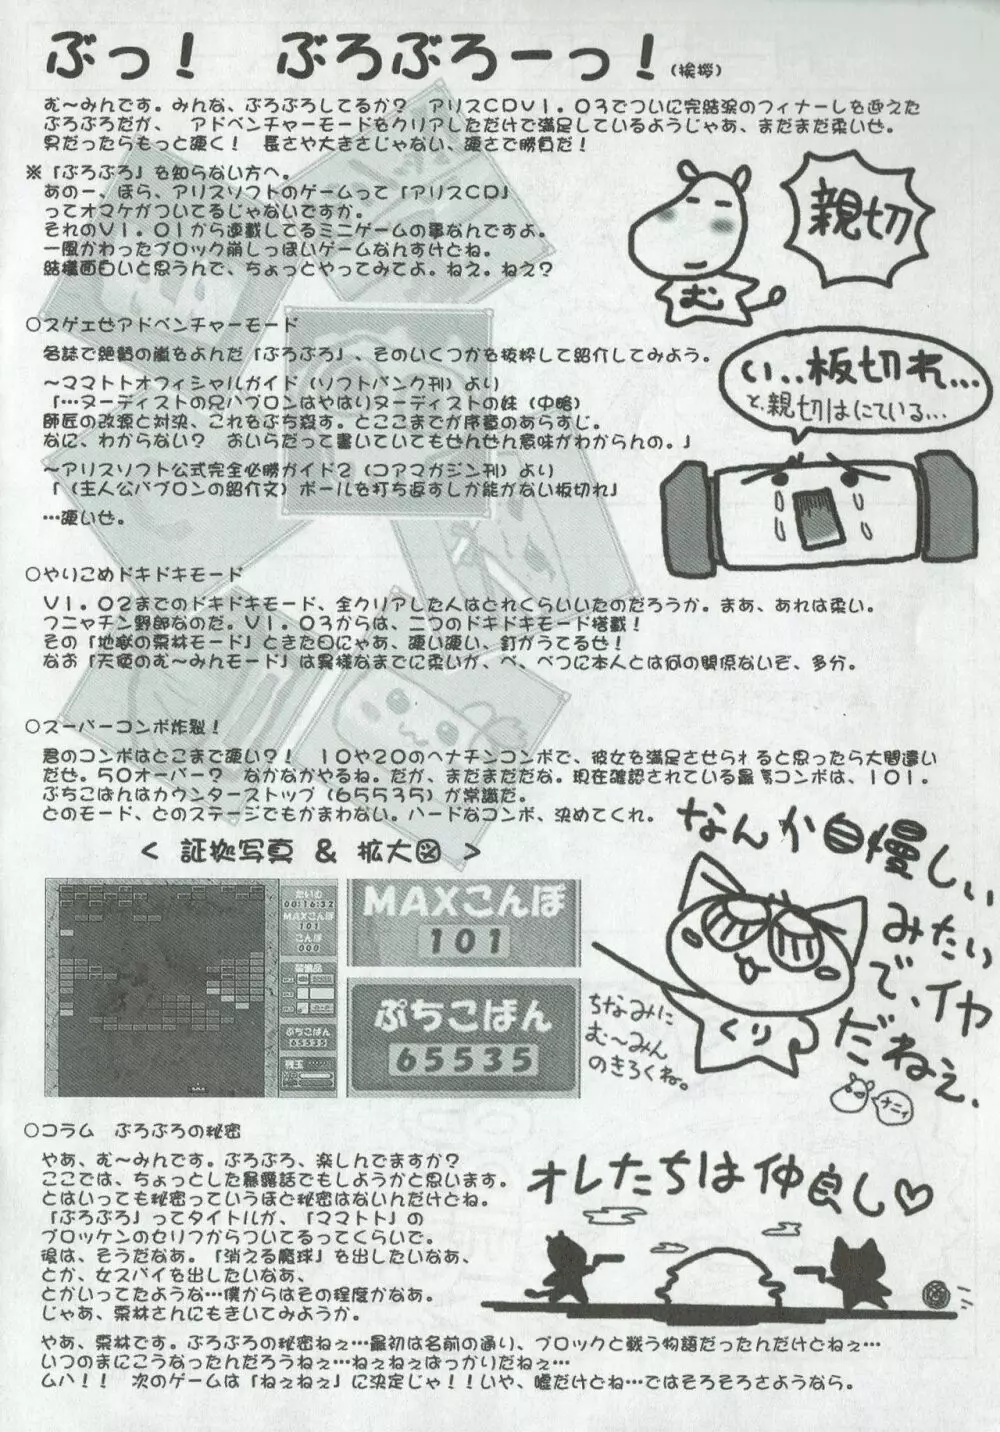 ぶっ！　ぶろぶろーっ！（挨拶）
む〜みんです。みんな、ぶろぶろしてるか？　アリスＣＤＶ１．０３でついに完結涙のフィナーレを迎えた
ぶろぶろだが、　アドベンチャーモードをクリアしただけで満足しているようじゃあ、まだまだ柔いぜ。
男だったらもっと硬く！　長さや大きさじゃない、硬さで勝負だ！
※「ぶろぶろ」を知らない方へ。
あのー、ほら、アリスソフトのゲームって「アリスＣＤ」
ってオマケがついてるじゃないですか。
それのＶ１．０１から連載してるミニゲームの事なんですよ。
一風かわったブロック崩しっぽいゲームなんすけどね。
結構面白いと思うんで、ちょっとやってみてよ。ねえ。ねえ？
親切
む
○スゲェぜアドベンチャーモード
各誌で絶賛の嵐をよんだ「ぶろぶろ」、そのいくつかを抜粋して紹介してみよう。
い‥板切れ…
と、親切はにている…
〜ママトトオフィシャルガイド（ソフトバンク刊）より
「…ヌーディストの兄ハブロンはやはりヌーディストの妹（中略）
師匠の改源と対決、これをぶち殺す。とここまでが序章のあらすじ。
なに、わからない？　おいらだって書いていてもぜんぜん意味がわからんの。」
〜アリスソフト公式完全必勝ガイド２（コアマガジン刊）より
「（主人公バブロンの紹介文）ボールを打ち返すしか能がない板切れ」
…硬いぜ。
○やりこめドキドキモード
Ｖ１．０２までのドキドキモード、全クリアした人はどれくらいいたのだろうか。まあ、あれは柔い。
フニャチン野郎なのだ。Ｖ１．０３からは、二つのドキドキモード搭載！
その「地獄の栗林モード」ときた日にゃあ、硬い硬い、釘がうてるぜ！
なお「天使のむ〜みんモード」は異様なまでに柔いが、べ、べつに本人とは何の関係ないぞ、多分。
○スーパーコンボ炸裂！
君のコンボはどこまで硬い？！　１０や２０のヘナチンコンボで、彼女を満足させられると思ったら大間違い
だぜ。５０オーバー？　なかなかやるね。だが、まだまだだな。現在確認されている最高コンボは、１０１。
ぷちこばんはカウンターストップ（６５５３５）が常識だ。
どのモード、どのステージでもかまわない。ハードなコンボ、決めてくれ。
＜ 証拠写真 ＆ 拡大図 ＞
たいむ
00:16:32
MAXこんぼ
101
こんぼ
000
装備品
ぷちこばん
65535
残玉
MAXこんぼ
101
ぷちこばん
65535
なんか自慢しい
みたい
で、イヤ
だねぇ、
くり
ナニィ
ちなみに
む〜みん
のきろくね。
○コラム　ぶろぶろの秘密
やあ、む〜みんです。ぶろぶろ、楽しんでますか？
ここでは、ちょっとした暴露話でもしようかと思います。
とはいっても秘密っていうほど秘密はないんだけどね。
「ぶろぶろ」ってタイトルが、「ママトト」の
ブロッケンのセリフからついてるってくらいで。
後は、そうだなあ。「消える魔球」を出したいなあ、
とか、女スパイを出したいなあ、
とかいってたような…僕からはその程度かなあ。
じゃあ、栗林さんにもきいてみようか。
オレたちは仲良し♡
やあ、栗林です。ぶろぶろの秘密ねぇ…最初は名前の通り、ブロックと戦う物語だったんだけどねぇ…
いつのまにこうなったんだろうねぇ…ねぇねぇばっかりだねぇ…
ムハ！！　次のゲームは「ねぇねぇ」に決定じゃ！！いや、嘘だけどね…ではそろそろさようなら。